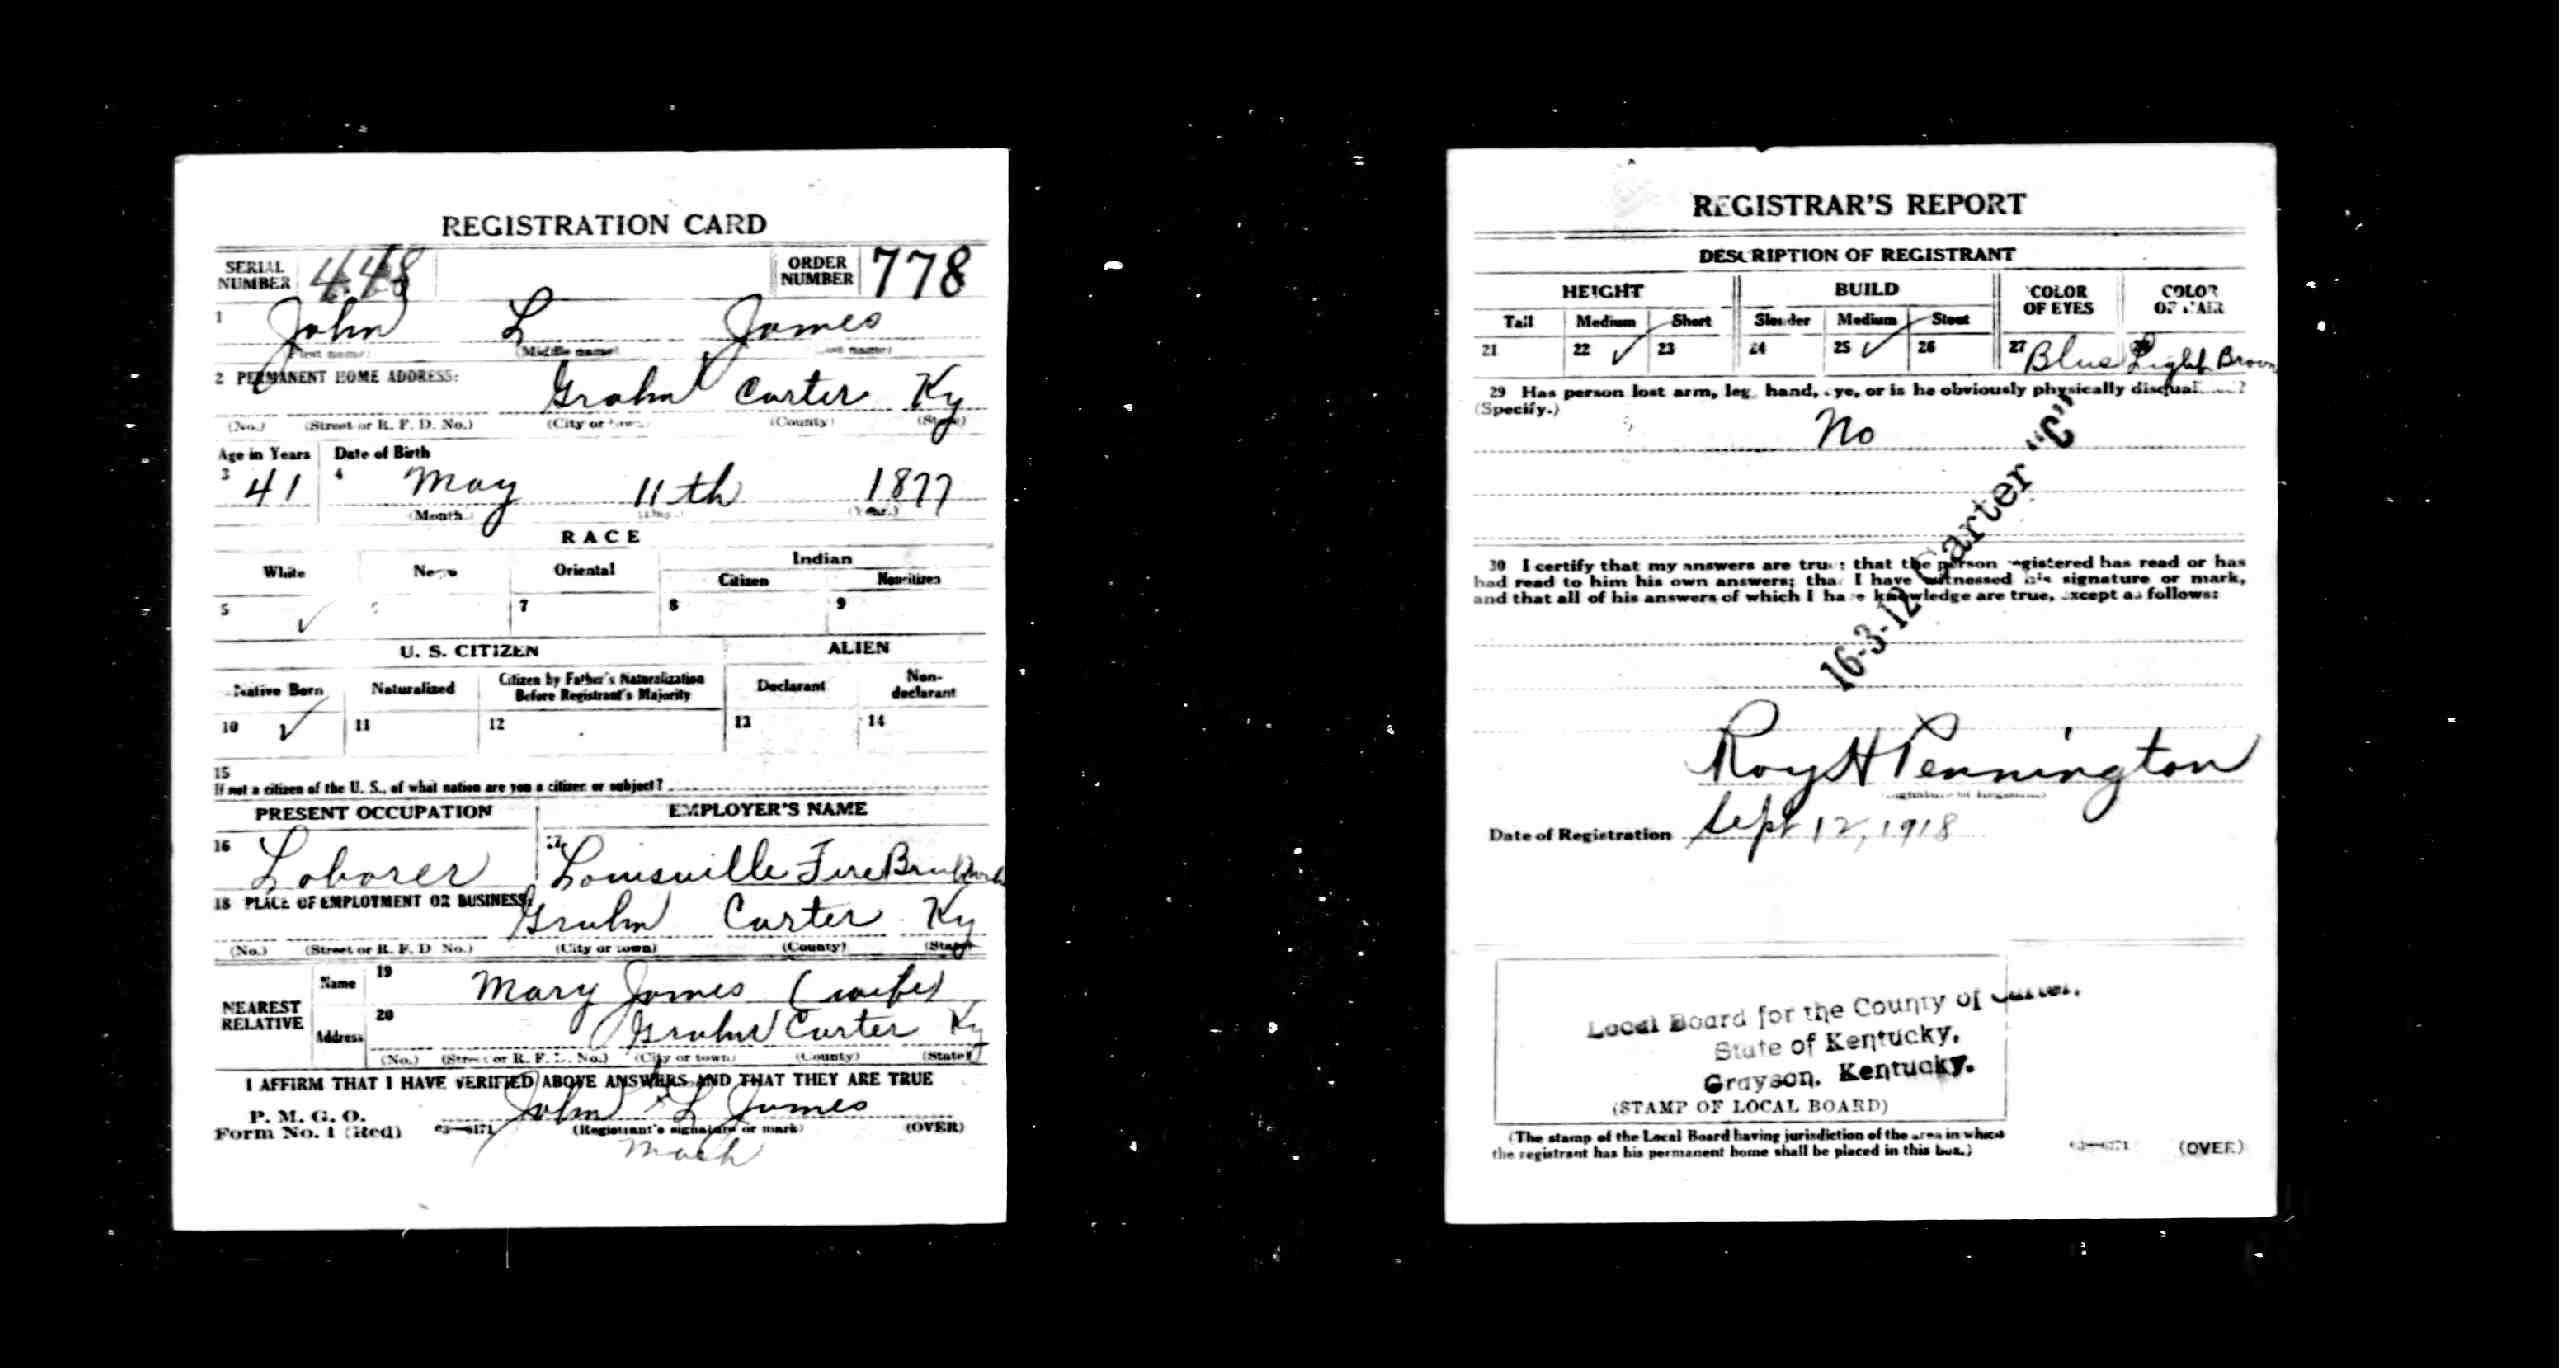 REGISTRATION CARD
SERIAL NUMBER 448 ORDER NUMBER 778
1 John L James
(First name) (Middle name) (Last name)
2 PERMANENT HOME ADDRESS:
Grahn Carter Ky
(No.) (Street or R. F. D. No.) (City or town) (County) (State)
Age in Years Date of Birth
3 41 4 May 11th 1877
(Month) (Day.) (Year.)
RACE
White Negro Oriental Indian
Citizen Noncitizen
5 ✓ 6 7 8 9
U. S. CITIZEN ALIEN
Native Born Naturalized Citizen by Father's Naturalization Before Registrant's Majority Declarant Non-declarant
10 ✓ 11 12 13 14
15
If not a citizen of the U. S., of what nation are you a citizen or subject?
PRESENT OCCUPATION EMPLOYER'S NAME
16 Laborer 17 Louisville Fire Brick
18 PLACE OF EMPLOYMENT OR BUSINESS:
Grahn Carter Ky
(No.) (Street or R. F. D. No.) (City or town) (County) (State)
NEAREST RELATIVE Name 19 Mary James (wife)
Address 20 Grahn Carter Ky
(No.) (Street or R. F. D. No.) (City or town) (County) (State)
I AFFIRM THAT I HAVE VERIFIED ABOVE ANSWERS AND THAT THEY ARE TRUE
P. M. G. O.
Form No. 1 (Red) John x L James
(Registrant's signature or mark) (OVER)
REGISTRAR'S REPORT
DESCRIPTION OF REGISTRANT
HEIGHT BUILD COLOR OF EYES COLOR OF HAIR
Tall Medium Short Slender Medium Stout
21 22 ✓ 23 24 25 ✓ 26 27 Blue 28 Light Brown
29 Has person lost arm, leg, hand, eye, or is he obviously physically disqualified?
(Specify.)
No
30 I certify that my answers are true; that the person registered has read or has
had read to him his own answers; that I have witnessed his signature or mark,
and that all of his answers of which I have knowledge are true, except as follows:
16-3-12 Carter "C"
Roy H Pennington
(Signature of Registrar)
Date of Registration Sept 12, 1918
Local Board for the County of Carter,
State of Kentucky,
Grayson, Kentucky.
(STAMP OF LOCAL BOARD)
(The stamp of the Local Board having jurisdiction of the area in which
the registrant has his permanent home shall be placed in this box.)
(OVER)